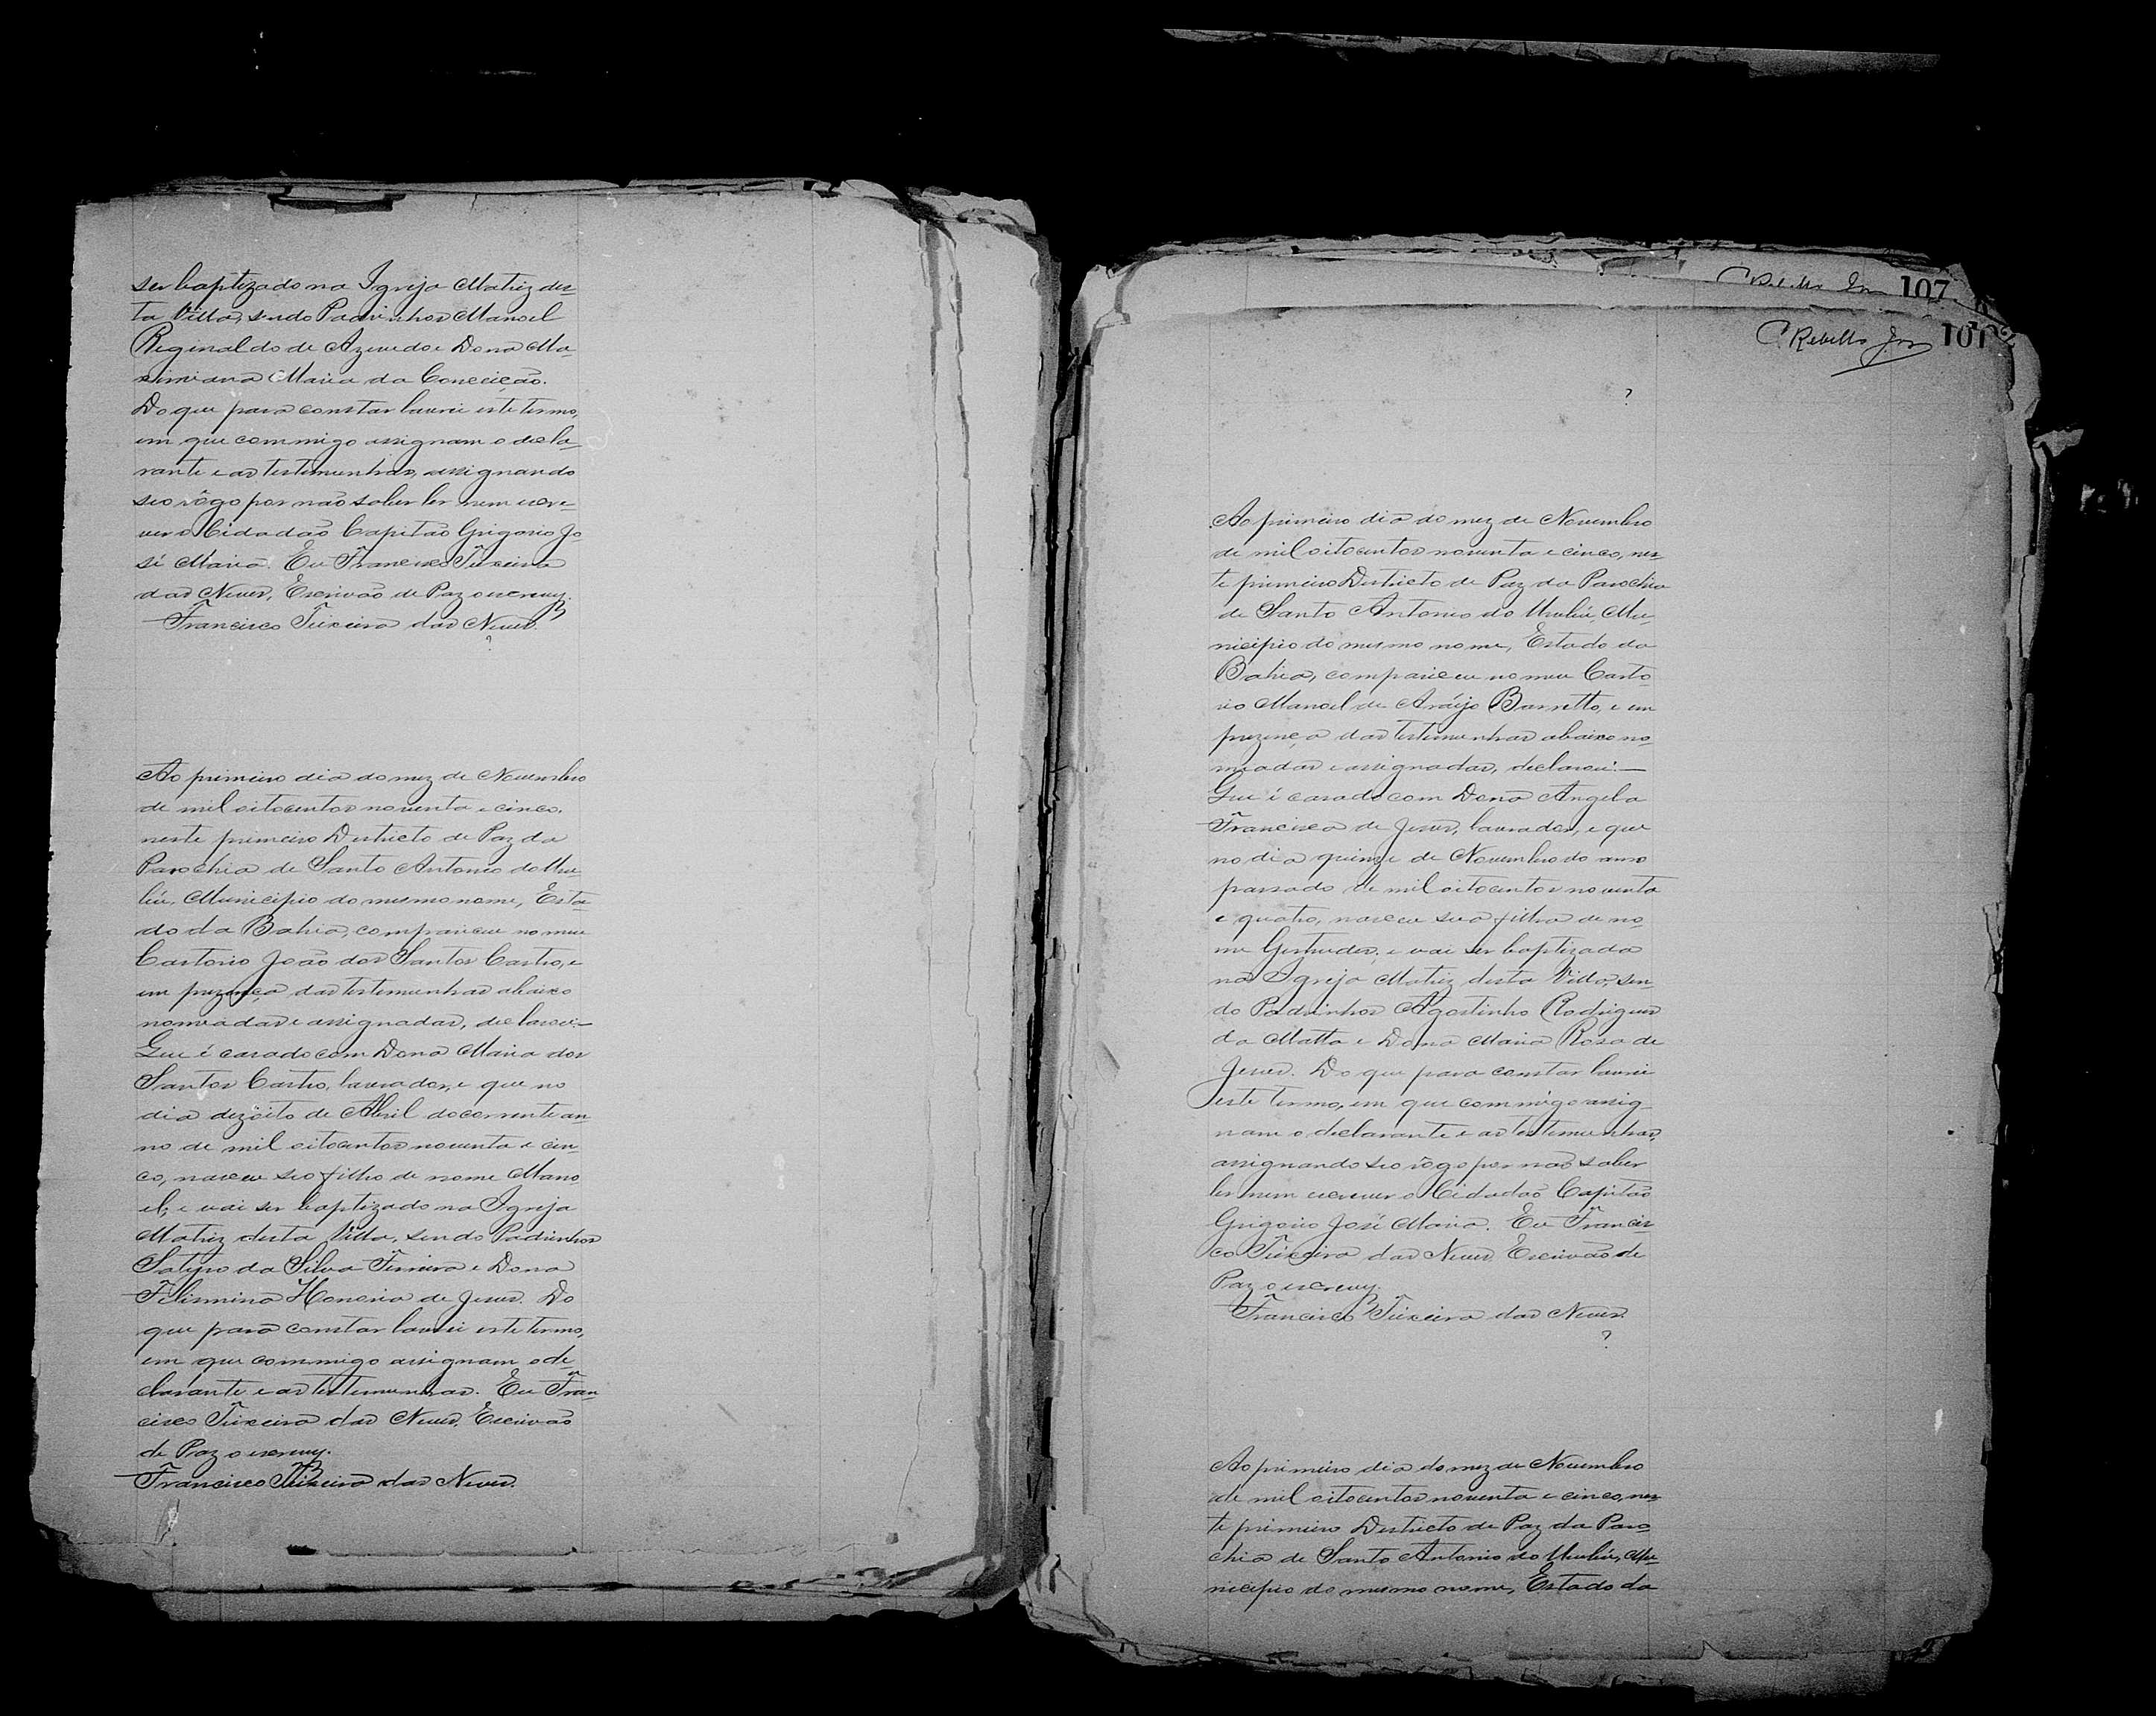 ser baptizado na Igreja Matriz des-
ta Villa, sendo Padrinhos Manoel
Reginaldo de Azevedo e Dona Ma-
ximiana Maria da Conceição.
Do que para constar lavrei este termo,
em que commigo assignam o decla-
rante e as testemunhas, assignando
seo rôgo por não saber ler nem escre-
ver o Cidadão Capitão Grigorio Jo-
sé Maria. Eu Francisco Teixeira
das Neves, Escrivão de Paz o escrevy.
Francisco Teixeira das Neves.
Ao primeiro dia do mez de Novembro
de mil oitocentos noventa e cinco,
neste primeiro Destricto de Paz da
Parochia de Santo Antonio do Uru-
bú, Municipio do mesmo nome, Esta-
do da Bahia, compareceu no meu
Cartorio João dos Santos Castro, e
em prezença das testemunhas abaixo
nomeadas e assignadas, declarou:—
Que é casado com Dona Maria dos
Santos Castro, lavrador, e que no
dia dezoito de Abril do corrente an-
no de mil oitocentos noventa e cin-
co, nasceu seo filho de nome Mano-
el; e vai ser baptizado na Igreja
Matriz desta Villa, sendo Padrinhos
Satyro da Silva Ferreira e Dona
Felismina Honoria de Jesus. Do
que para constar lavrei este termo,
em que commigo assignam o de-
clarante e as testemunhas. Eu Fran-
cisco Teixeira das Neves, Escrivão
de Paz o escrevy.
Francisco Teixeira das Neves.
107
C Rebello Jor 101
Ao primeiro dia do mez de Novembro
de mil oitocentos noventa e cinco, nes-
te primeiro Destricto de Paz da Parochia
de Santo Antonio do Urubú, Mu-
nicipio do mesmo nome, Estado da
Bahia, compareceu no meu Carto-
rio Manoel de Araújo Barretto, e em
prezença das testemunhas abaixo no-
meadas e assignadas, declarou:—
Que é casado com Dona Angela
Francisca de Jesus, lavrador, e que
no dia quinze de Novembro do anno
passado de mil oitocentos noventa
e quatro, nasceu sua filha de no-
me Gertrudes; e vai ser baptizada
na Igreja Matriz desta Villa, sen-
do Padrinhos Agostinho Rodrigues
da Matta e Dona Maria Rosa de
Jesus. Do que para constar lavrei
este termo, em que commigo assig-
nam o declarante e as testemunhas,
assignando seo rôgo por não saber
ler nem escrever o Cidadão Capitão
Grigorio José Maria. Eu Francis-
co Teixeira das Neves Escrivão de
Paz o escrevy.
Francisco Teixeira das Neves.
Ao primeiro dia do mez de Novembro
de mil oitocentos noventa e cinco, nes-
te primeiro Destricto de Paz da Paro-
chia de Santo Antonio do Urubú, Mu-
nicipio do mesmo nome, Estado da